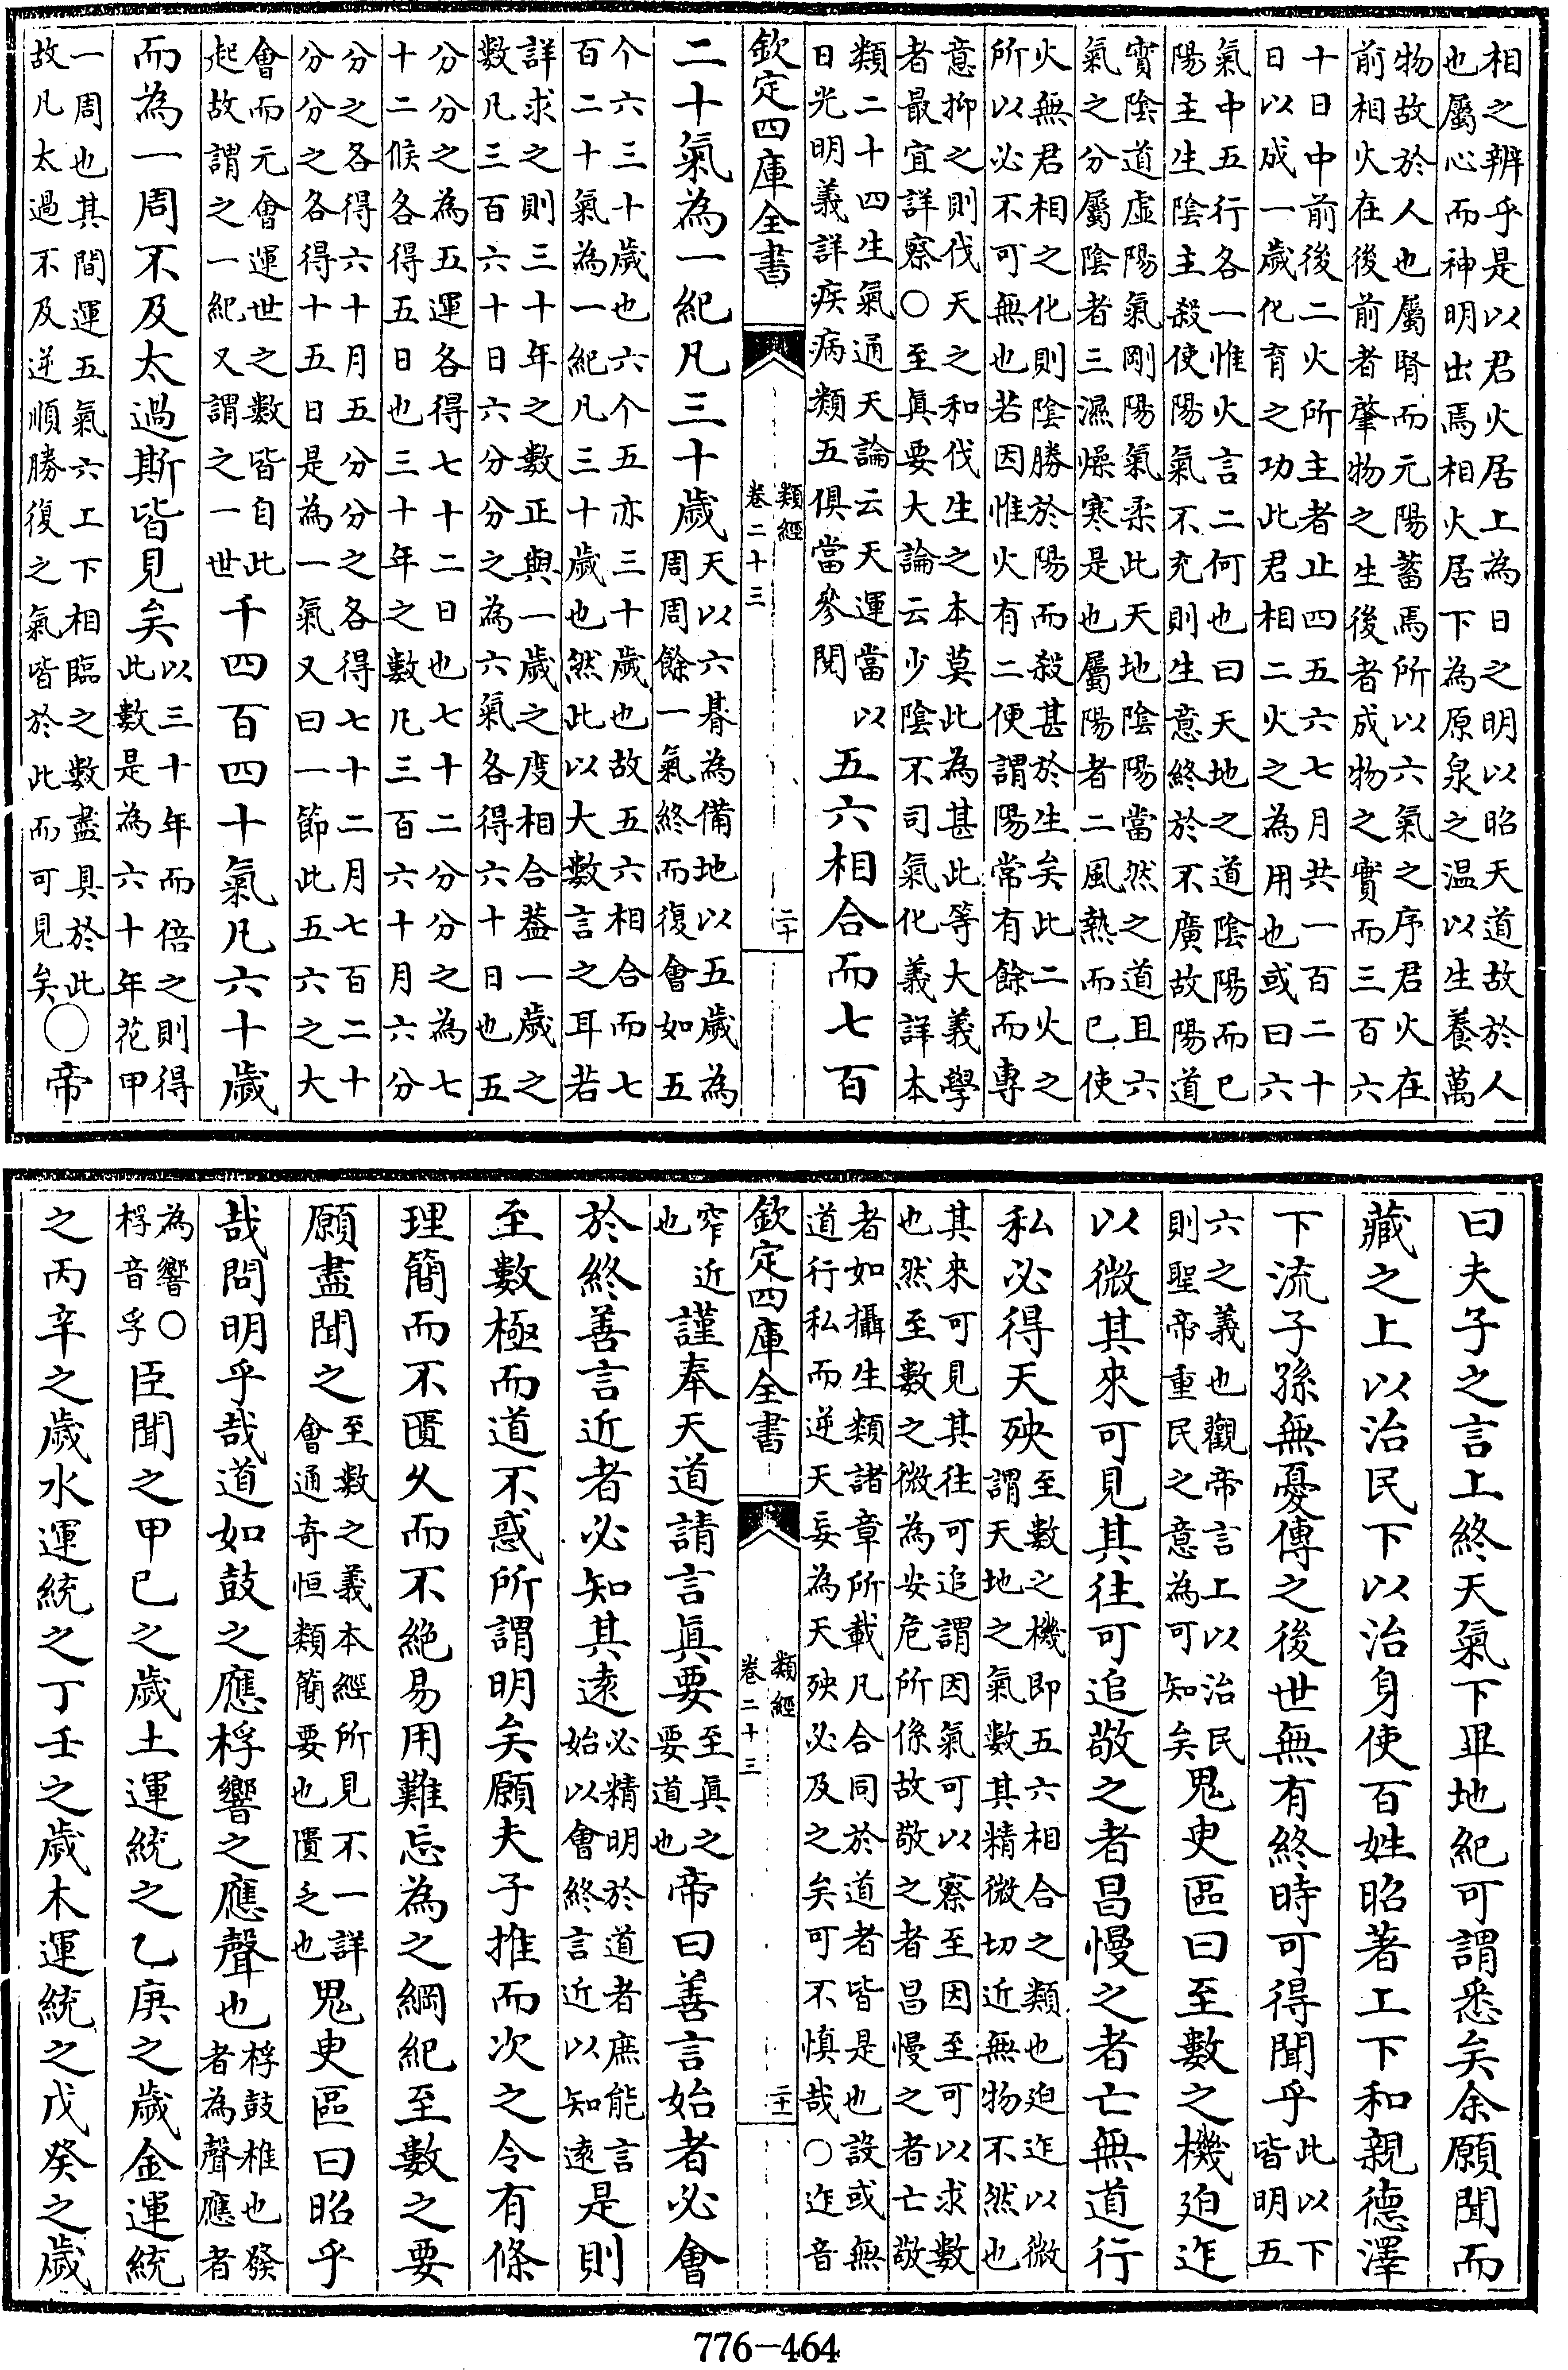 相之辨乎是以君火居上為日之明以昭天道故於人
也屬心而神明出焉相火居下為原泉之温以生養萬
物故於人也屬腎而元陽蓄焉所以六氣之序君火在
前相火在後前者肇物之生後者成物之實而三百六
十日中前後二火所主者止四五六七月共一百二十
日以成一歲化育之功此君相二火之為用也或曰六
氣中五行各一惟火言二何也曰天地之道陰陽而已
陽主生陰主殺使陽氣不充則生意終於不廣故陽道
實陰道虛陽氣剛陽氣柔此天地陰陽當然之道且六
氣之分屬陰者三濕燥寒是也屬陽者二風熱而已使
火無君相之化則陰勝於陽而殺甚於生矣此二火之
所以必不可無也若因惟火有二便謂陽常有餘而專
意抑之則伐天之和伐生之本莫此為甚此等大義學
者最宜詳察○至眞要大論云少陰不司氣化義詳本
類二十四生氣通天論云天運當以
日光明義詳疾病類五俱當參閱
五六相合而七百
欽定四庫全書
類經
卷二十三
二十
二十氣為一紀凡三十歲
天以六朞為備地以五歲為
周周餘一氣終而復會如五
个六三十歲也六个五亦三十歲也故五六相合而七
百二十氣為一紀凡三十歲也然此以大數言之耳若
詳求之則三十年之數正與一歲之度相合葢一歲之
數凡三百六十日六分分之為六氣各得六十日也五
分分之為五運各得七十二日也七十二分分之為七
十二候各得五日也三十年之數凡三百六十月六分
分之各得六十月五分分之各得七十二月七百二十
分分之各得十五日是為一氣又曰一節此五六之大
會而元會運世之數皆自此
起故謂之一紀又謂之一世
千四百四十氣凡六十歲
而為一周不及太過斯皆見矣
以三十年而倍之則得
此數是為六十年花甲
一周也其間運五氣六上下相臨之數盡具於此
故凡太過不及逆順勝復之氣皆於此而可見矣
○帝
曰夫子之言上終天氣下畢地紀可謂悉矣余願聞而
藏之上以治民下以治身使百姓昭著上下和親德澤
下流子孫無憂傳之後世無有終時可得聞乎
此以下
皆明五
六之義也觀帝言上以治民
則聖帝重民之意為可知矣
鬼臾區曰至數之機廹迮
以微其來可見其往可追敬之者昌慢之者亡無道行
私必得天殃
至數之機即五六相合之類也迫迮以微
謂天地之氣數其精微切近無物不然也
其來可見其往可追謂因氣可以察至因至可以求數
也然至數之微為安危所係故敬之者昌慢之者亡敬
者如攝生類諸章所載凡合同於道者皆是也設或無
道行私而逆天妄為天殃必及之矣可不慎哉○迮音
欽定四庫全書
類經
卷二十三
二十一
窄近
也
謹奉天道請言眞要
至眞之
要道也
帝曰善言始者必會
於終善言近者必知其遠
必精明於道者庶能言
始以會終言近以知遠
是則
至數極而道不惑所謂明矣願夫子推而次之令有條
理簡而不匱久而不絶易用難忘為之綱紀至數之要
願盡聞之
至數之義本經所見不一詳
會通奇恒類簡要也匱乏也
鬼臾區曰昭乎
哉問明乎哉道如鼓之應桴響之應聲也
桴鼓椎也發
者為聲應者
為響○
桴音孚
臣聞之甲己之歲土運統之乙庚之歲金運統
之丙辛之歲水運統之丁壬之歲木運統之戊癸之歲
776-464